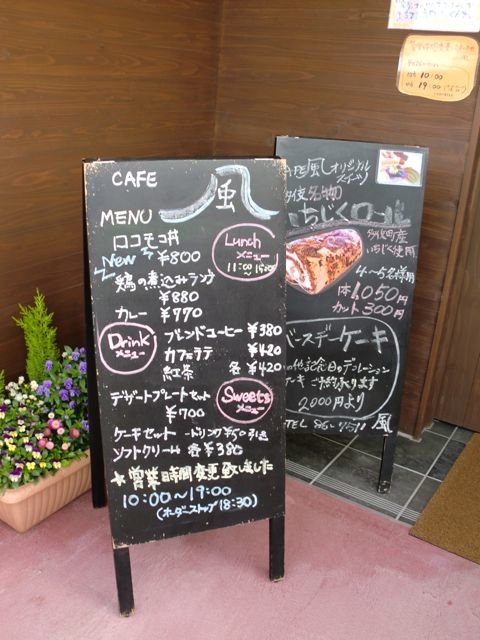 CAFE 風
MENU
ロコモコ丼
New ¥800
Lunch
メニュー
11:00~15:00
鶏の煮込みランチ
¥880
カレー ¥770
Drink
メニュー
ブレンドコーヒー ¥380
カフェラテ ¥420
紅茶 各¥420
デザートプレートセット
¥700
Sweets
メニュー
ケーキセット ードリンク¥50引き
ソフトクリーム 各¥380
★営業時間変更致しました
10:00~19:00
(オーダーストップ18:30)
風 オリジナル
スイーツ
名物
いちじくロール
町産
いちじく使用
4~5名様用
1本1,050円
カット300円
バースデーケーキ
その他記念日のデコレーション
ケーキ ご予約承ります
2000円より
TEL 85-7511 風
10:00
19:00